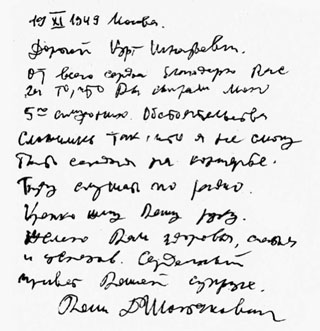 19 XI 1949 Москва.
Дорогой Курт Игнатьевич.
От всего сердца благодарю Вас
за то, что Вы сыграли мою
5ую симфонию. Обстоятельства
сложились так, что я не смогу
быть сегодня на концерте.
Буду слушать по радио.
Крепко жму Вашу руку.
Желаю Вам здоровья, счастья
и успехов. Сердечный
привет Вашей супруге.
Ваш Д Шостакович